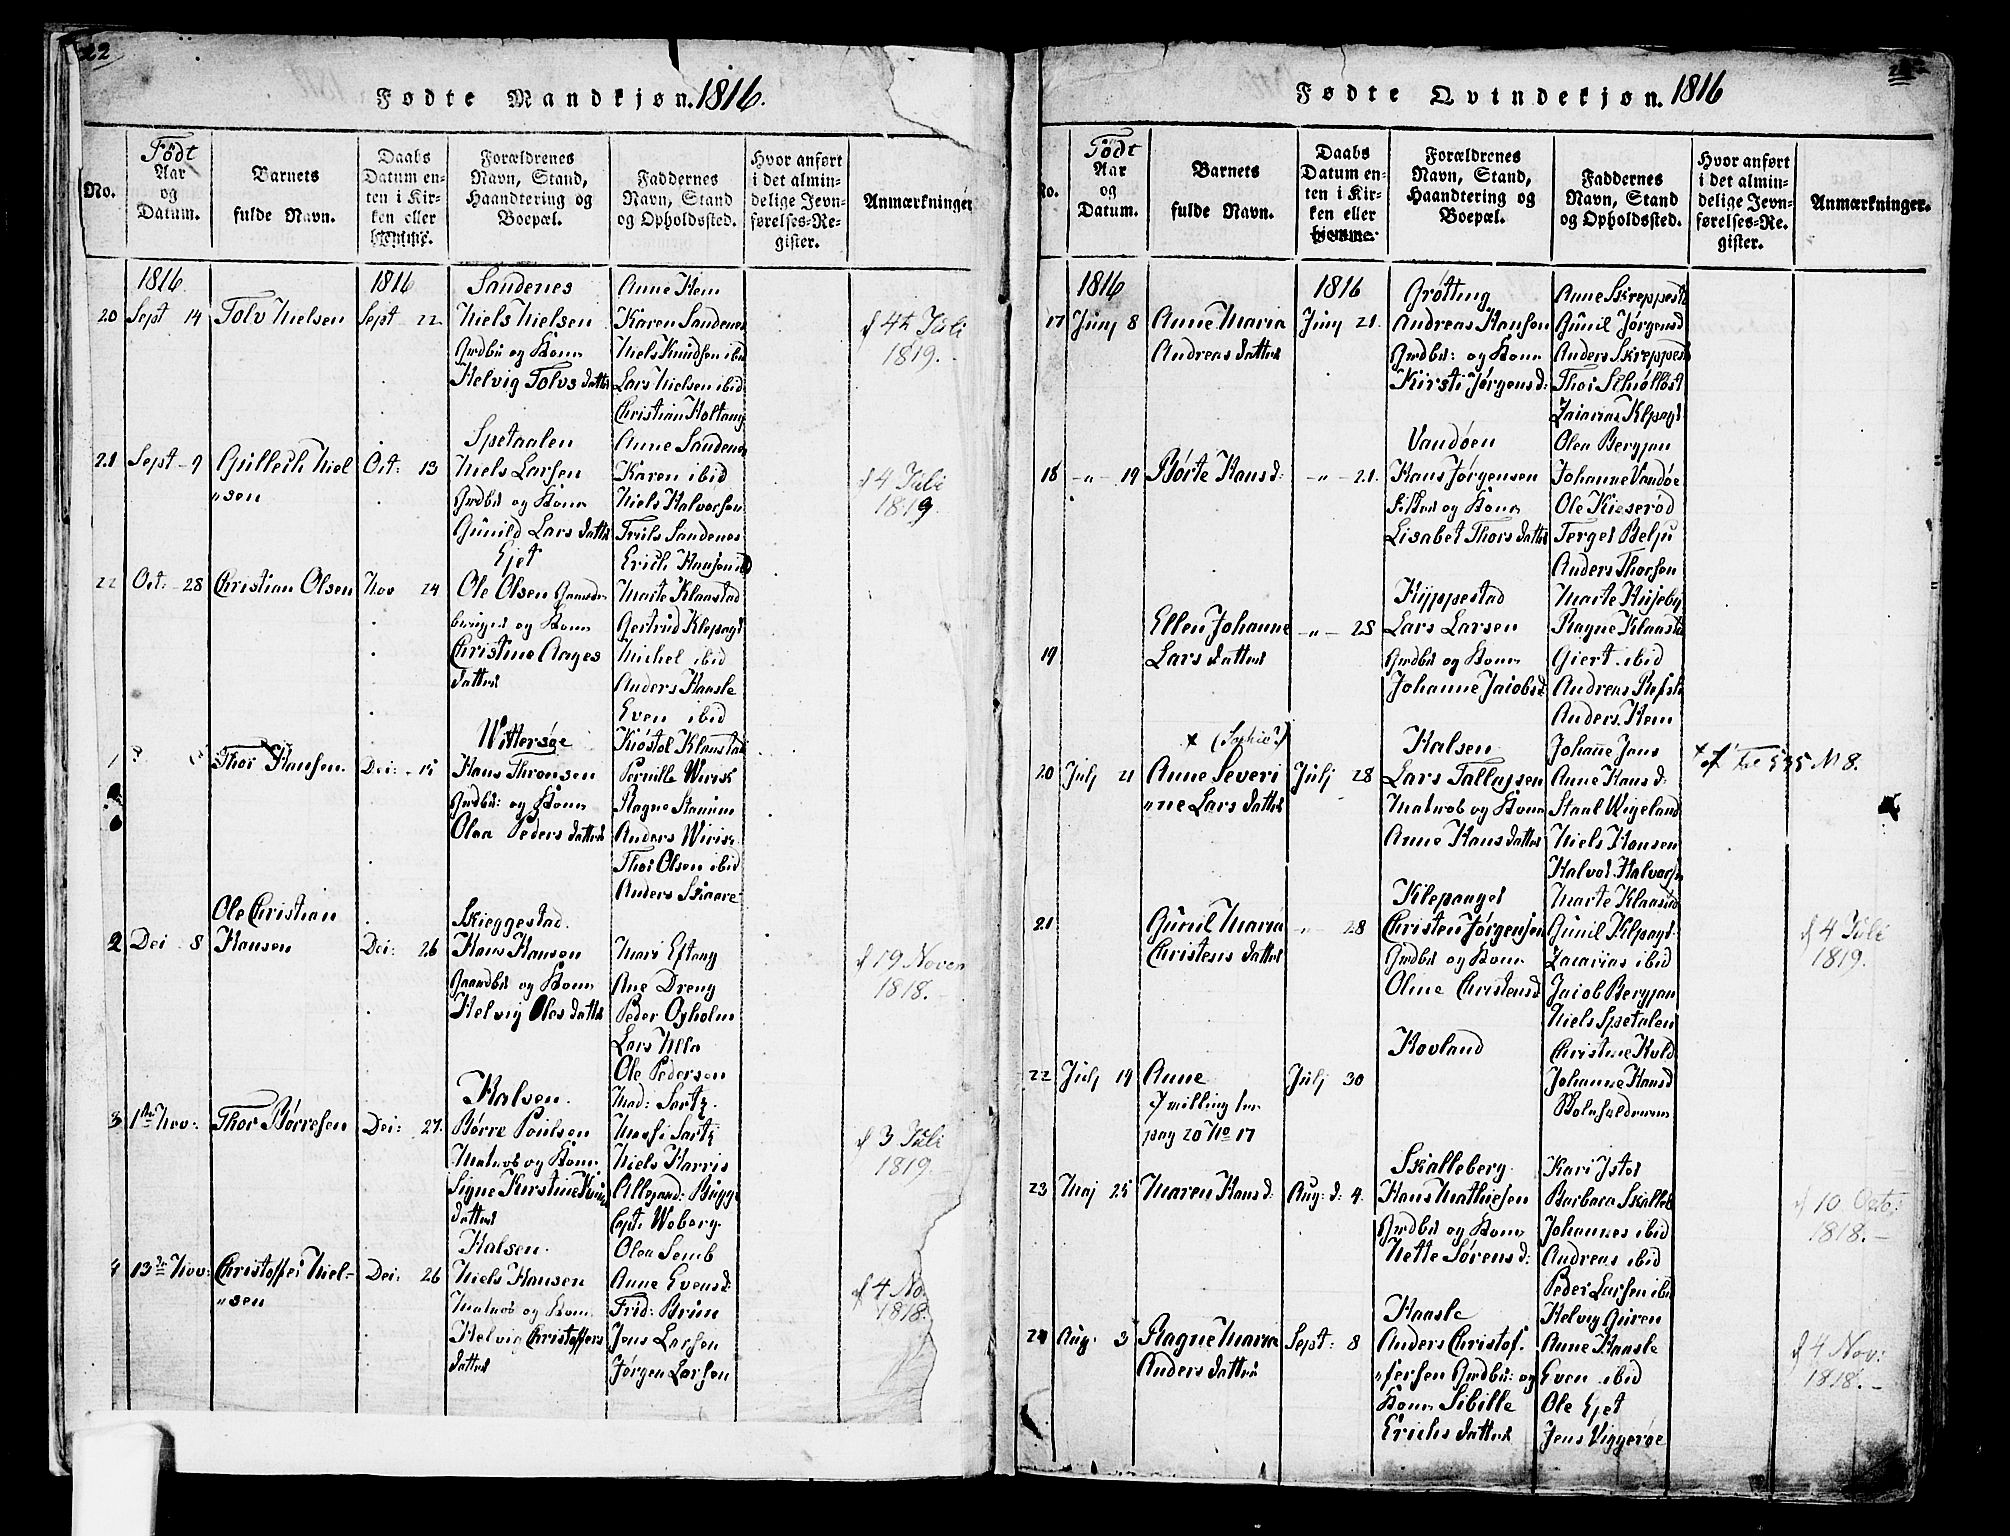 22
Fødte Mandkjøn. 1816.
No.
Født
Aar
og
Datum.
Barnets
fulde Navn.
Daabs
Datum en-
ten i Kir-
ken eller
hjemme.
Forældrenes
Navn, Stand,
Haandtering og
Boepæl.
Faddernes
Navn, Stand
og Opholdssted.
Hvor anført
i det almin-
delige Jevn-
førelses-Re-
gister.
Anmærkninger
1816.
1816
20 Sept 14
Tolv Nielsen
Sept 22
Sandenes
Niels Nielsen
Grdbr og Kone
Helvig Tolvs datter
Anne Hem
Karen Sandenes
Niels Knudsen ibid
Lars Nielsen ibid
Christian Holtang
4de Juli
1819.
21 Sept - 9
Gullech Niel
"sen
Oct: 13
Spetaalen
Niels Larsen
Grdbr og Kone
Gunild Lars datter
Anne Sandenes
Karen ibid
Niels Halvorsen
Truls Sandenes
Erich Hansen ibd
4 Juli
1819
22 Oct: - 28
Christian Olsen
Nov 24
Ejet
Ole Olsen
og Kone
Christine Aages
datter
Marte Klaastad
Gertrud Klepager
Michel ibid
Anders Haasle
Even ibid
1
Thor Hansen.
Dec: - 15
Wittersøe
Hans Thronsen
Grdbr: og Kone
Olea Peders datter
Kiøstol Klaastad
Pernille Wirik
Ragne Stamim
Anders Wirik
Thor Olsen ibid
Anders Skaare
2 Dec 8
Ole Christian
Hansen
Dec: 26
Skieggestad.
Hans Hansen
Gaardbr og Kone
Helvig Oles datter
Mari Eftang
Ane Dreng
Peder Oxholm
Lars Ulla
Ole Pedersen
19 Novem
1818.
3 1ste Nov:
Thor Børresen
Dec: 27.
Halsen.
Børre Poulsen
Matros og Kone
Signe Kirstine
datter
Mad: Sartz.
Niels Harris
Capt: Woberg.
3 Juli
1819.
4 13de Nov:
Christoffer Niel-
"sen
Dec: 26
Halsen.
Niels Hansen
Matros og Kone
Helvig Christoffers
datter
Olea Semb
Anne Evensd:
Frid: Brun
Jens Larsen
Jørgen Larsen
4 Nov
1818.
Fødte Qvindekjøn. 1816
No.
Født
Aar
og
Datum.
Barnets
fulde Navn.
Daabs
Datum en-
ten i Kir-
ken eller
hjemme.
Forældrenes
Navn, Stand,
Haandtering og
Boepæl.
Faddernes
Navn, Stand
og Opholdssted.
Hvor anført
i det almin-
delige Jevn-
førelses-Re-
gister.
Anmærkninger.
1816
1816
17 Junj 8
Anne Maria
Andreas datter
Junj 21.
Grøtting
Andreas Hansen
Grdbr: og Kone
Kirsti Jørgensd:
Anne Skreppesta
Gunil Jørgensd
Anders Skreppest
Zacarias Klepagr
18 -"- 19
Børte Hansd:
-"- 21.
Vandøen
Hans Jørgensen
og Kone
Lisabet Thors datter
Olea Bergjan
Johanne Vandøe
Ole Kieserød
Terger Belju
Anders Thorsen
19
Ellen Johanne
Lars datter
-"- 23
Hyppestad
Lars Larsen
Grdbr og Kone
Johanne Jacobsd
Marte Huseby
Ragne Klaasta
Giert ibid
Andreas
Anders Hem
20 Julj 21
x (Sophie?)
Anne Severi
"ne Lars datter
Julj 28
Halsen
Lars Tallagsen
Matros og Kone
Anne Hans datter
Johanne Jans
Anne Hansd:
Staal Wigeland
Niels Hansen
Halvor Halvorsen
x Fol 535 N 8.
21
Gunil Maria
Christens datter
-"- 28
Klepanger
Christen Jørgensen
Grdbr og Kone
Oline Christensd
Marte Klaastad
Gunil Klepagr
Zacarias ibid
Jacob Bergjan
Niels Spetalen
4 Juli
1819.
22 Julj 19
Anne
Tvilling
pag 20 No 17
Julj 30
Hovland
Christine Hold
Johanne Hansd
23 Maj 25
Maren Hansd:
Aug: d: 4.
Skalleberg.
Hans Mathiesen
Grdbr og Kone
Nette Sørensd:
Kari Ister
Barbara Skalleb
Johannes ibid
Andreas ibid
Peder Larsen ibid
10 Octo:
1818.-
24 Aug. 3
Ragne Maria
Anders datter
Sept: 8
Haasle
Anders Christof-
"fersen Grdbr: og
Kone Sibille
Erichs datter
Helvig Guren
Anne Haasle
Even ibid
Ole Ejet
Jens Viggerøe
4 Nov:
1818.-